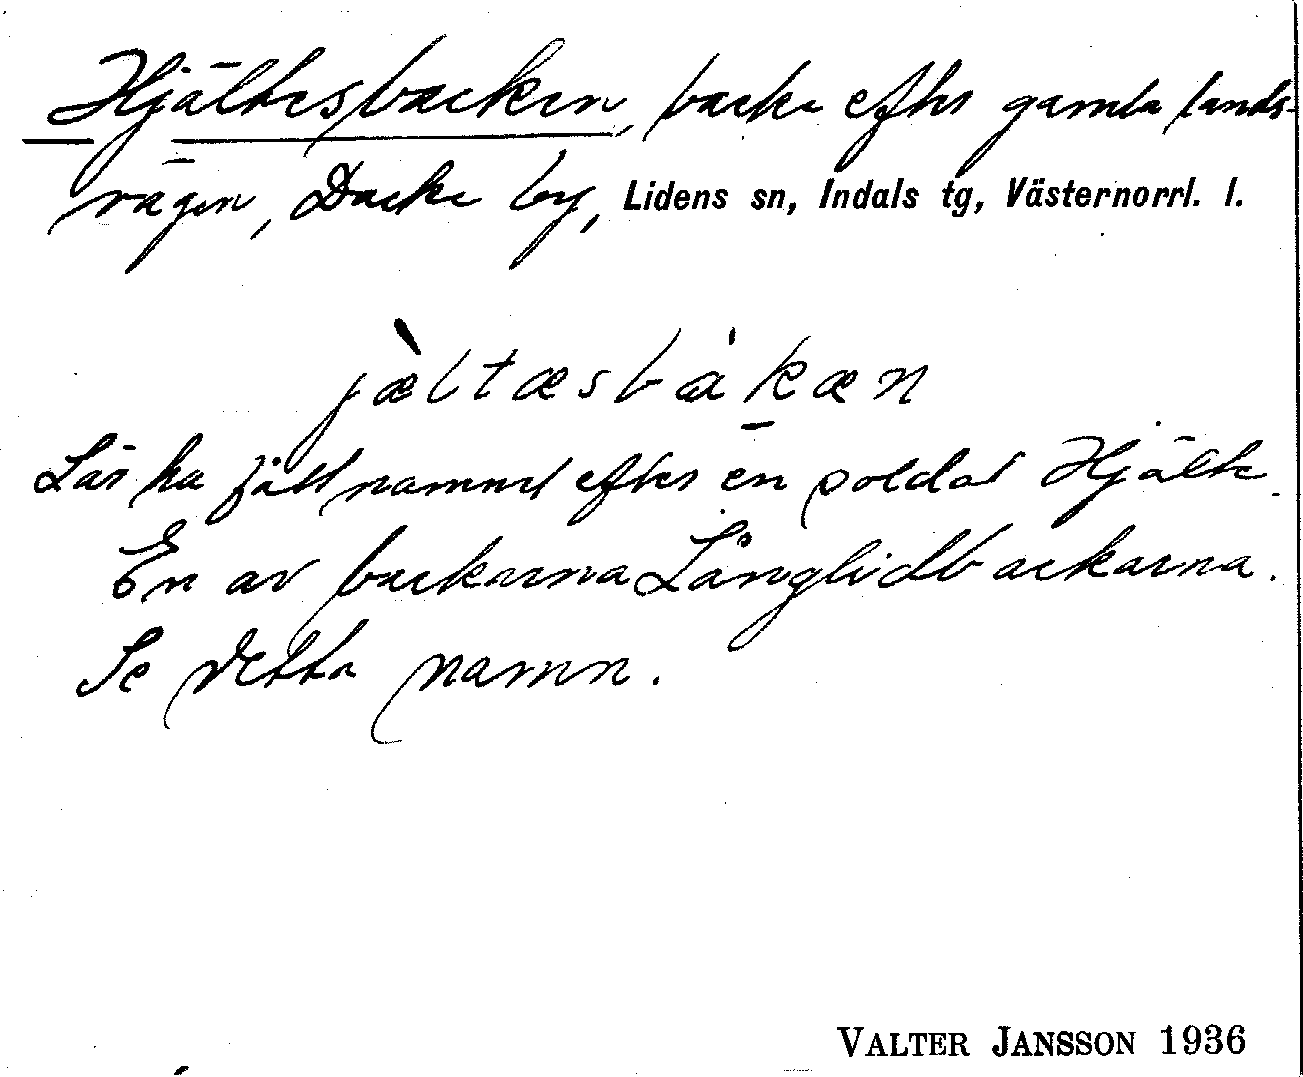 Hjältesbacken, backe efter gamla lands-
vägen, Dacke by, Lidens sn, Indals tg, Västernorrl. l.
jæ̀ltæsbákæn
Lär ha fått namnet efter en soldat Hjälte.
En av backarna Långlidbackarna.
Se detta namn.
VALTER JANSSON 1936